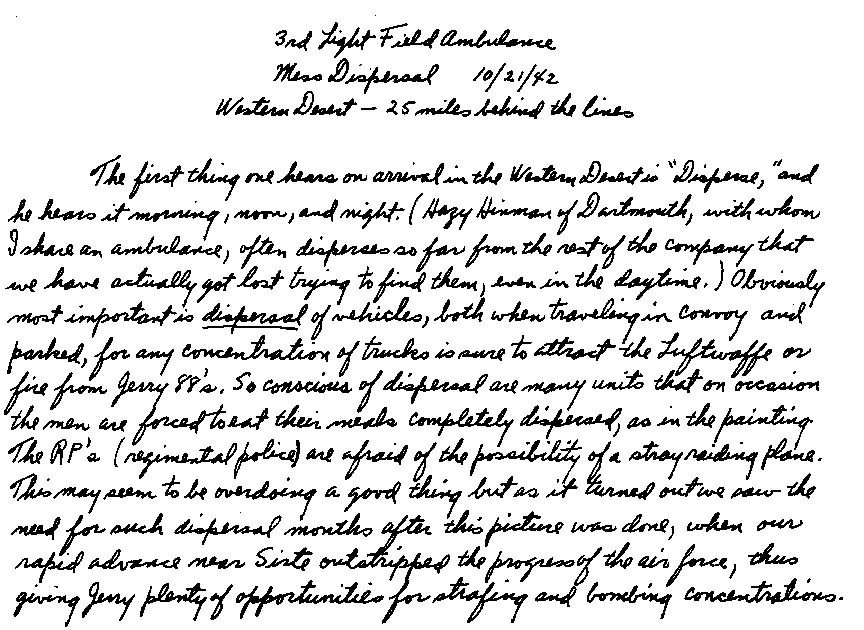 3rd Light Field Ambulance
Mess Dispersal 10/21/42
Western Desert – 25 miles behind the lines
The first thing one hears on arrival in the Western Desert is "Disperse," and
he hears it morning, noon, and night. (Hazy Hinman of Dartmouth, with whom
I share an ambulance, often disperses so far from the rest of the company that
we have actually got lost trying to find them, even in the daytime.) Obviously
most important is dispersal of vehicles, both when traveling in convoy and
parked, for any concentration of trucks is sure to attract the Luftwaffe or
fire from Jerry 88's. So conscious of dispersal are many units that on occasion
the men are forced to eat their meals completely dispersed, as in the painting.
The RP's (regimental police) are afraid of the possibility of a stray raiding plane.
This may seem to be overdoing a good thing but as it turned out we saw the
need for such dispersal months after this picture was done, when our
rapid advance near Sirte outstripped the progress of the air force, thus
giving Jerry plenty of opportunities for strafing and bombing concentrations.